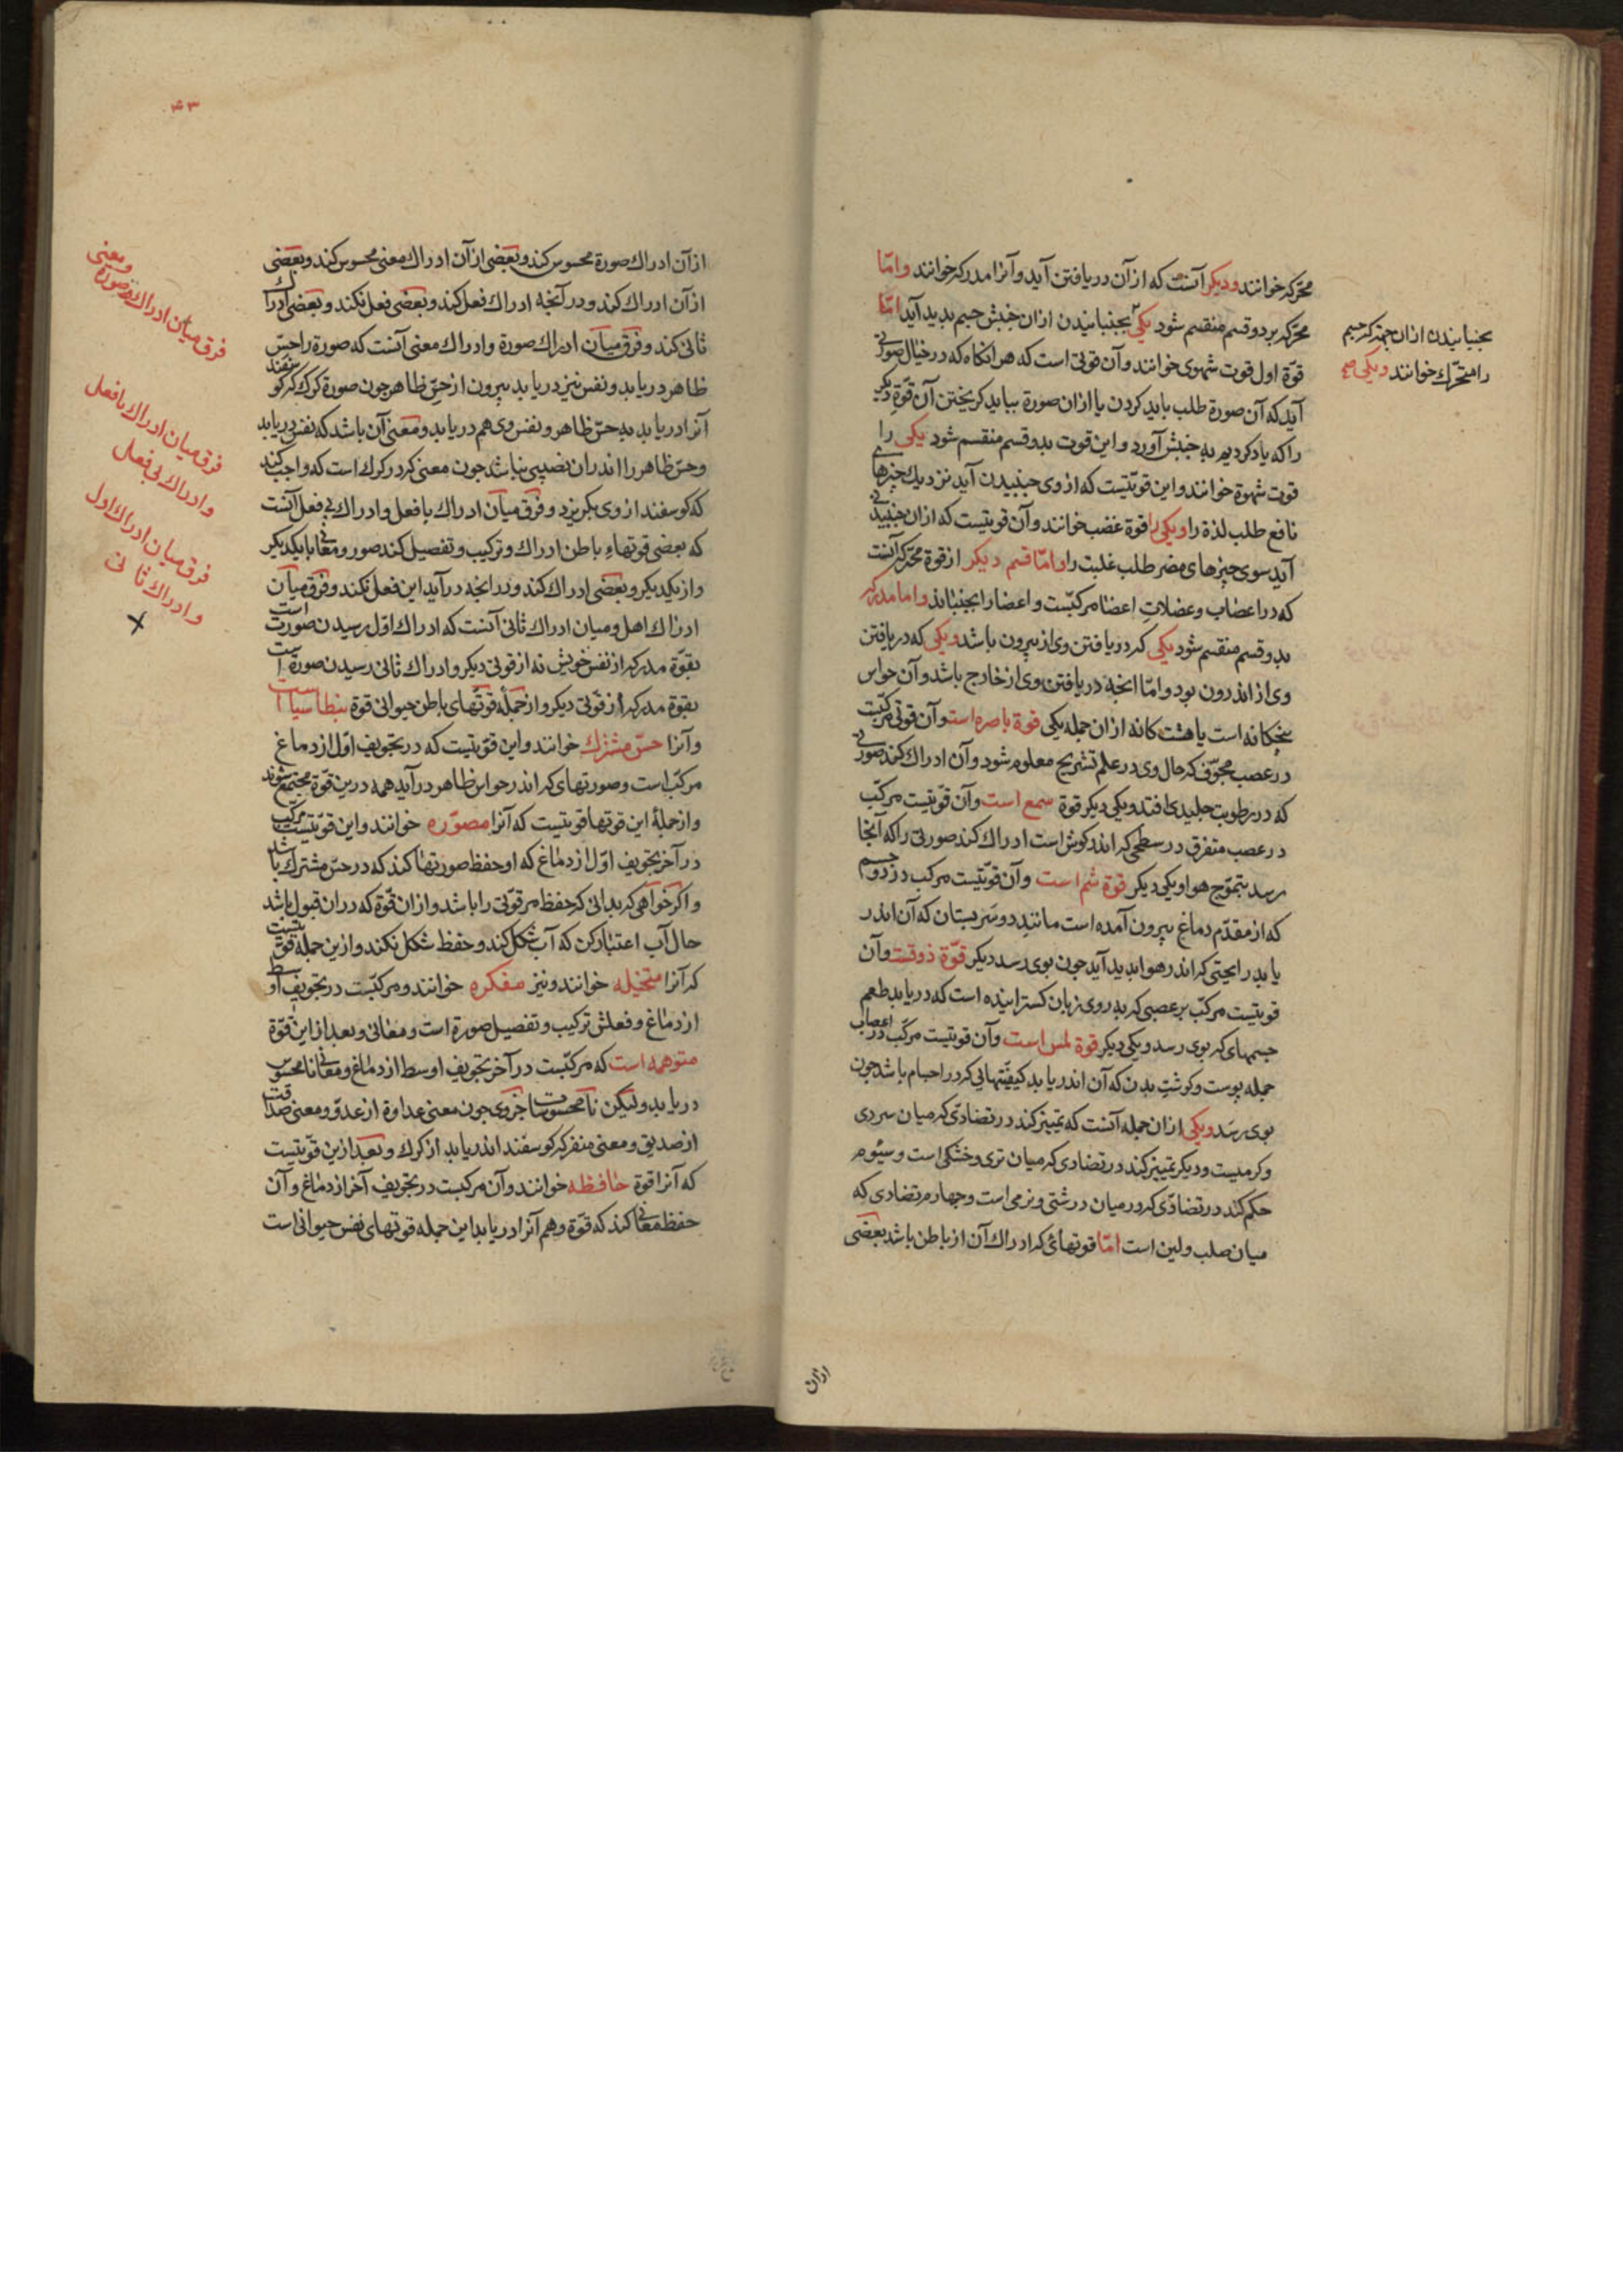 محرّکه خوانند ودیکر آنست که ازآن دریافتن آید وآنرا مدرکه خوانند وامّا
محرّکه بردوقسم منقسم شود یکی بجنبانیدن ازان جنبش جسم بدید آید امّا
قوّة اول قوت شهوی خوانند وآن قوتی است که هرانکاه که درخیال صورتی
آید که آن صورة طلب باید کردن یا ازان صورة بباید کریختن آن قوّة دیکر
راکه یاد کردیم به جنبش آورد واین قوت بدوقسم منقسم شود یکی را
قوت شهوة خوانند واین قوّتیست که ازوی جنبیدن آید نزدیك چیزهای
نافع طلب لذة را ویکی را قوة غضب خوانند وآن قوتیست که ازان جنبیدنی
آید سوی چیزهای مضر طلب غلبت را وامّا قسم دیکر ازقوة محرّکه آنست
که دراعصاب وعضلات اعضا مرکبّست واعضارا بجنباند واما مدرکه
بدوقسم منقسم شود یکی که دریافتن وی از بیرون باشد ویکی که دریافتن
وی از اندرون بود وامّا انچه دریافتن وی ازخارج باشد وآن حواس
پنجکانه است یا هشت کانه ازان جمله یکی قوة باصره است وآن قوتی مرکبّست
درعصب مجوّف که حال وی درعلم تشریح معلوم شود وآن ادراك کند صورتی
که دررطوبت جلیدی افتد ویکی دیکر قوة سمع است وآن قوّتیست مرکبّ
درعصب متفرق درسطحی که اندر کوش است ادراك کند صورتی راکه آنجا
رسد بتموّج هوا ویکی دیکر قوة شم است وآن قوّتیست مرکب دردو جسم
که ازمقدّم دماغ بیرون آمده است مانند دوسر بستان که آن اندر
یابد رایحتی که اندر هوا بدید آید جون بوی رسد دیکر قوّة ذوقست وآن
قوتیست مرکبّ برعصبی که به روی زبان کسترانیده است که دریابد طعم
جسمهای که بوی رسد ویکی دیکر قوة لمس است وآن قوتیست مرکّب دراعصاب
جمله پوست وکوشت بدن که آن اندریابد کیفیّتهائی که دراجسام باشد جون
بوی رسد ویکی ازان جمله آنست که تمییز کند درتضادّی که میان سردی
وکرمیست ودیکر تمییز کند درتضادی که میان تری وخشکی است وسیُوم
حکم کند درتضادّی که درمیان درشتی ونرمی است وچهارم تضادی که
میان صلب ولین است امّا قوتهائی که ادراك آن ازباطن باشد بعضی
بجنبانیدن ازان جهة که جسم
را متحرّك خوانند ویکی صح
ازان
۴۳
ازآن ادراك صورة محسوس کند وبعضی ازآن ادراك معنی محسوس کند وبعضی
ازآن ادراك کند ودرآنچه ادراك فعل کند وبعضی فعل نکند وبعضی ادراك
ثانی کند وفرق میان ادراك صورة وادراك معنی آنست که صورة راحسّ
ظاهر دریابد ونفس نیز دریابد بیرون ازحسّ ظاهر جون صورة کرك که کوسفند
آنرا دریابد به حسّ ظاهر ونفس وی هم دریابد ومعنی آن باشد که نفس دریابد
وحسّ ظاهر را اندران نصیبی نباشد جون معنی که درکرك است که واجب کند
که کوسفند ازوی بکریزد وفرق میان ادراك بافعل وادراك بی فعل آنست
که بعضی قوتهاء باطن ادراك وترکیب وتفصیل کند صور ومعانی بایکدیکر
وازیکدیکر وبعضی ادراك کند ودرانچه درآید این فعل نکند وفرق میان
ادراك اهل ومیان ادراك ثانی آنست که ادراك اوّل رسیدن صورت است
بقوّة مدرکه ازنفس خویش نه ازقوتی دیکر وادراك ثانی رسیدن صورة است
بقوة مدرکه ازقوّتی دیکر وازجملهٔ قوّتهای باطن حیوانی قوة بنطاسیا است
وآنرا حسّ مشترك خوانند واین قوّتیست که درتجویف اوّل ازدماغ
مرکبّ است وصورتهای که اندر حواس ظاهر درآید همه درین قوّة مجتمع شوند
وازجملهٔ این قوتها قوتیست که آنرا مصوّره خوانند واین قوّتیست مرکّب
درآخر تجویف اوّل ازدماغ که اوحفظ صورتها کند که درحسّ مشترك باشد
واکر خواهی که بدانی که حفظ مرقوّتی را باشد وازان قوّة که دران قبول باشد
حال آب اعتبار کن که آب شکل کند وحفظ شکل نکند وازین جمله قوّتیست
که آنرا متخیله خوانند ونیز مفکره خوانند ومرکبّست درتجویف اوسط
ازدماغ وفعلش ترکیب وتفصیل صورة است ومعانی وبعد ازاین قوّة
متوهمه است که مرکبّست درآخر تجویف اوسط ازدماغ ومعانی نامحسوس
دریابد ولیکن نامحسوسات جزوی جون معنی عداوة ازعدوّ ومعنی صداقت
ازصدیق ومعنی منفر که کوسفند اندریابد ازکرك وبعد ازین قوّتیست
که آنرا قوة حافظه خوانند وآن مرکبست درتجویف آخر ازدماغ وآن
حفظ معانی کند که قوّة وهم آنرا دریابد این جمله قوتهای نفس حیوانی است
فرق میان ادراك صورة
ومعنی
فرق میان ادراك بافعل
وادراك بی فعل
فرق میان ادراك اول
وادراك ثانی